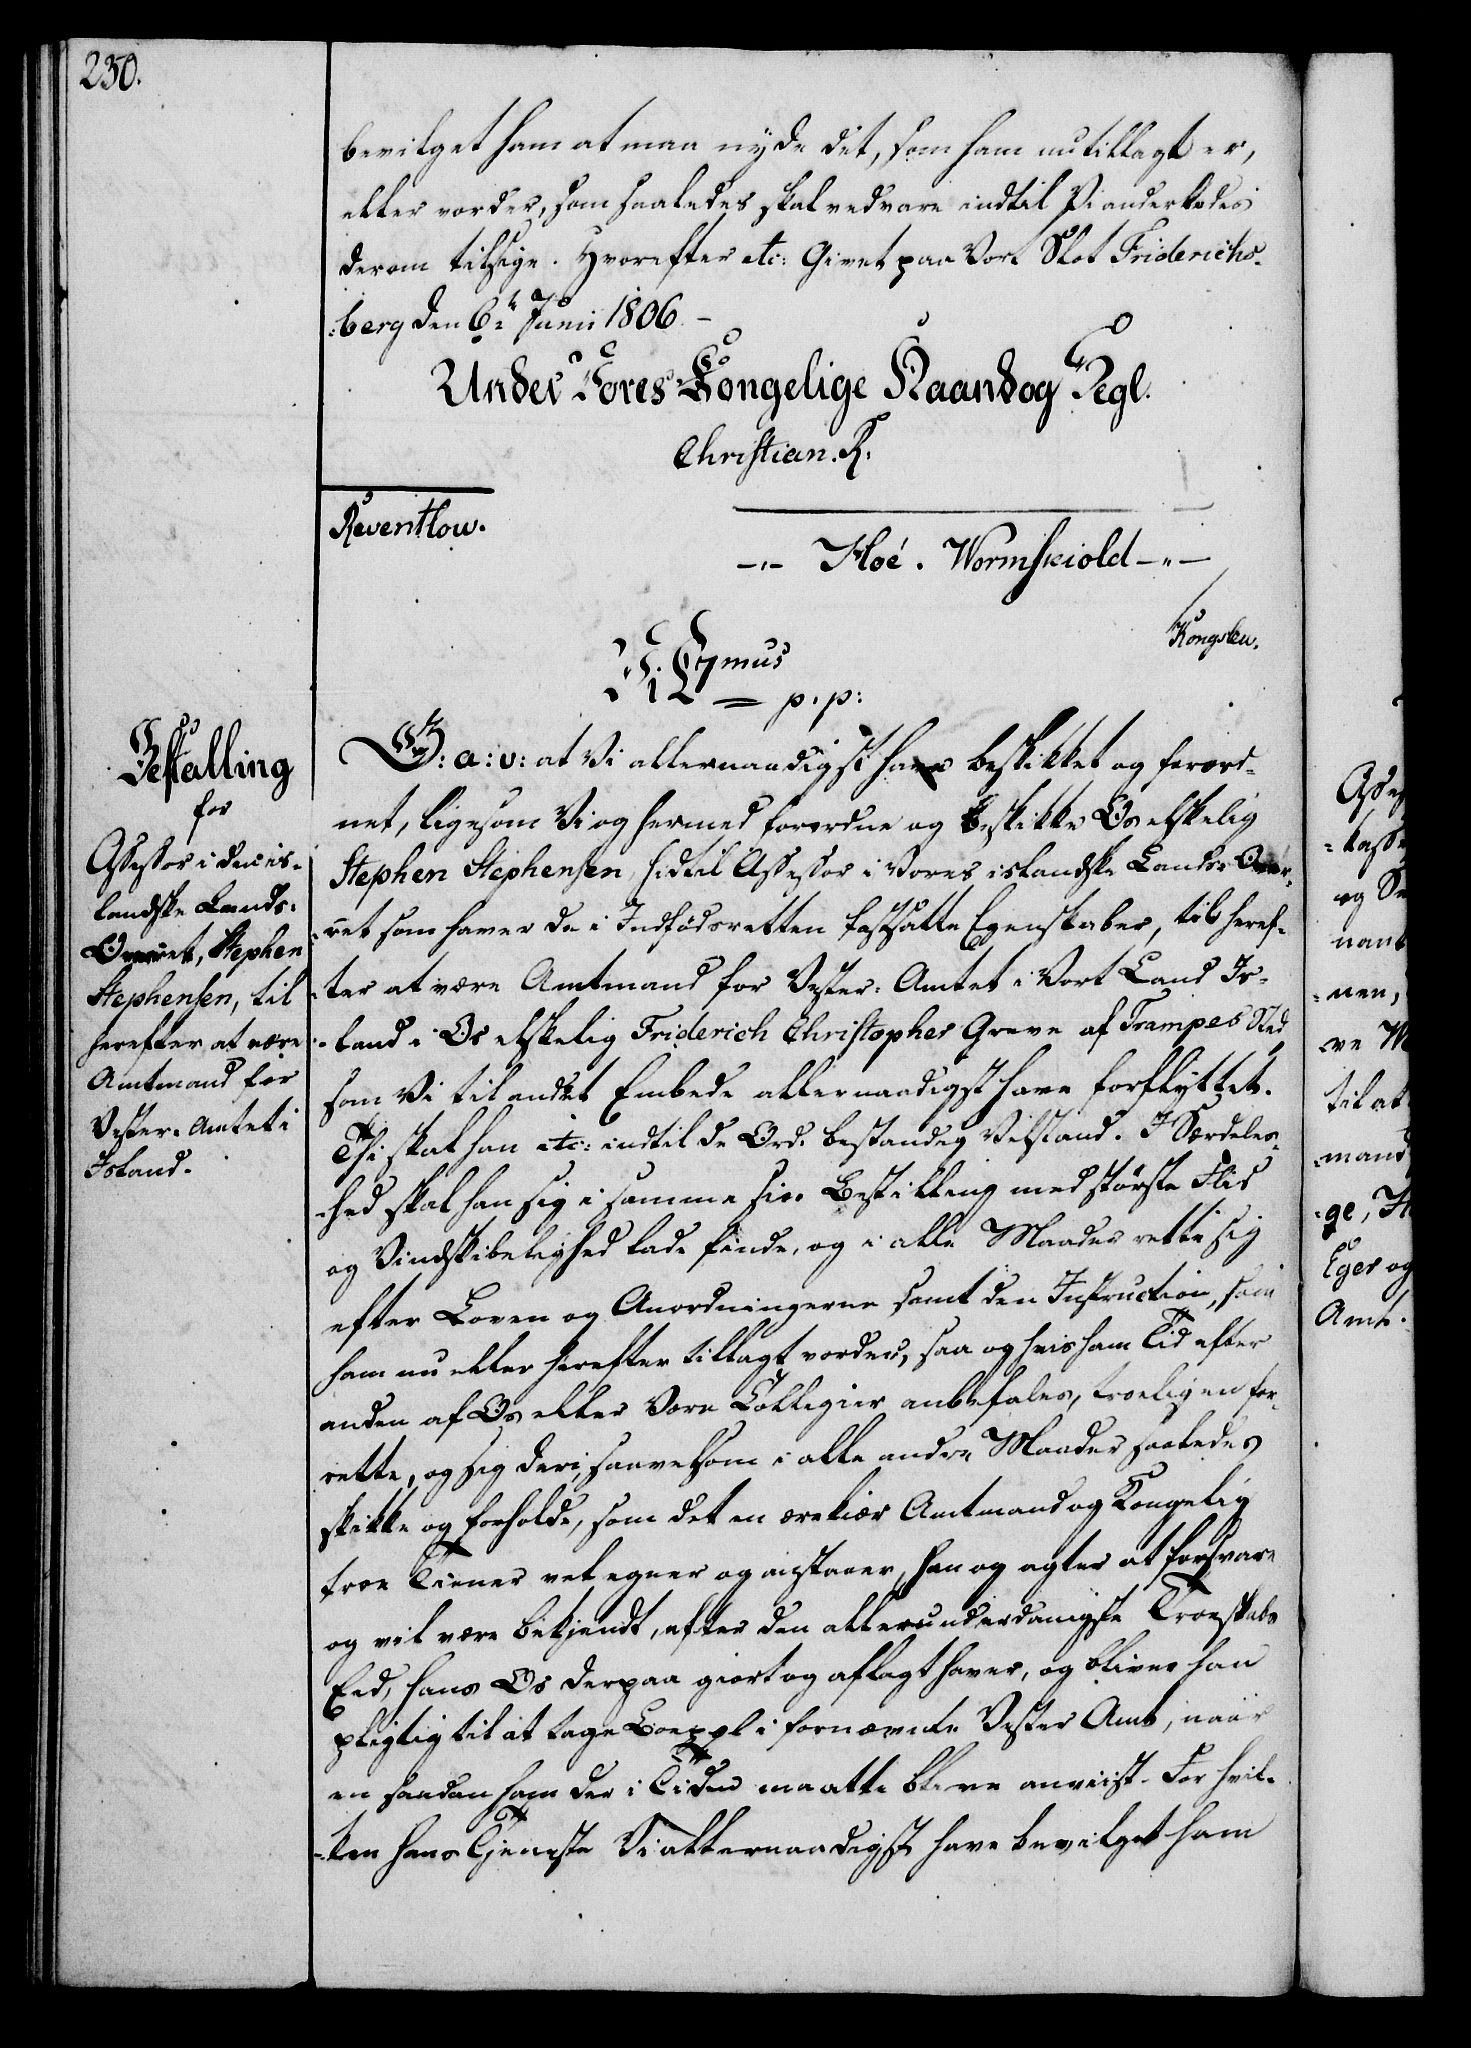 230.
bevilget ham at maa nyde det, som ham nu tillagt er,
eller vorder, som saaledes skal vedvare indtil Vi anderledes
derom tilsige. Hvorefter etc: Givet paa Vort Slot Friderichs-
:berg den 6te Junii 1806. –
Under Vores Kongelige Haand og Segl.
Christian. R.
Reventlow.
–"– Höé. Wormskiold –"–
Kongslew.
p. p:
Bestalling
for
Assessor i den is-
landske Lands-
Overret, Stephen
Stephensen, til
herefter at være
Amtmand for
Vester-Amtet i
Island.
G: a: v: at Vi allernaadigst have beskikket og forord-
net, ligesom Vi og hermed forordne og beskikke Os elskelig
Stephen Stephensen, hidtil Assessor i Vores islandske Lands-Over-
-ret som haver de i Indfødsretten fastsatte Egenskaber, til heref-
-ter at være Amtmand for Vester-Amtet i Vort Land Is-
-land i Os elskelig Friderich Christopher Greve af Trampes Sted
som Vi til andet Embede allernaadigst have forflyttet.
Thi skal han etc: indtil de Ord. bestandig Velstand. I Særdeles-
-hed skal han sig i samme sin Bestilling med største Fliid
og Vindskibelighed lade finde, og i alle Maader rette sig
efter Loven og Anordningerne samt den Instruction, som
ham nu eller herefter tillagt vorder, saa og hvis ham Tid efter
anden af Os eller Vore Collegier anbefales, troeligen for-
rette, og sig deri, saavelsom i alle andre Maader saaledes
skikke og forholde, som det en ærekiær Amtmand og Kongelig
troe Tiener vel egner og anstaaer, han og agter at forsvare
og vil være bekjendt, efter den allerunderdanigste Troeskabs
Eed, hans Os derpaa giort og aflagt haver, og bliver han
pligtig til at tage Boepæl i fornævnte Vester Amt, naar
en saadan ham der i Tiden maatte blive anviist. For hvil-
-ken hans Tjeneste Vi allernaadigst have bevilget ham
og
nant
-nen,
-ve
til at
-mand
-ge,
Eger og
Amt.